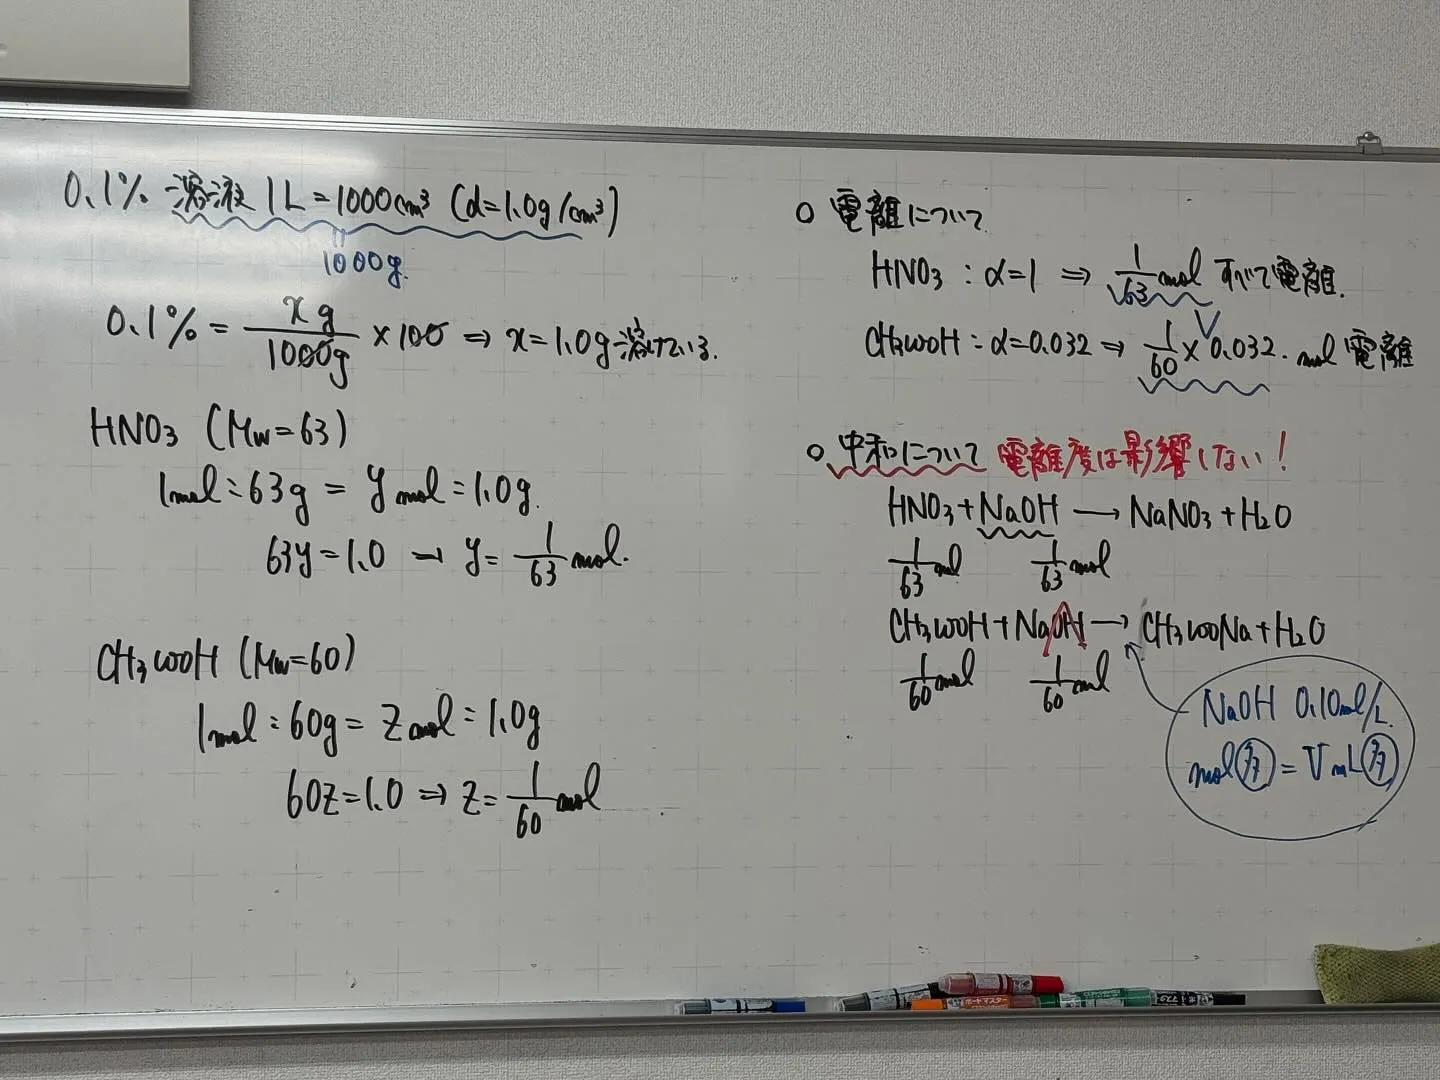 0.1% 溶液 1L=1000cm³ (d=1.0g/cm³)
1000g.
0.1% = xg/1000g ×100 ⇒ x=1.0g 溶けている.
HNO₃ (Mw=63)
1mol=63g = ymol=1.0g.
63y=1.0 → y= 1/63 mol.
CH₃COOH (Mw=60)
1mol=60g= zmol=1.0g
60z=1.0 ⇒ z= 1/60 mol
○ 電離について
HNO₃ : α=1 ⇒ 1/63 mol すべて電離.
CH₃COOH : α=0.032 ⇒ 1/60 × 0.032. mol 電離
○ 中和について 電離度は影響しない!
HNO₃+NaOH → NaNO₃+H₂O
1/63 mol 1/63 mol
CH₃COOH+NaOH → CH₃COONa+H₂O
1/60 mol 1/60 mol
NaOH 0.10mol/L.
mol = V mL
ボードマスター